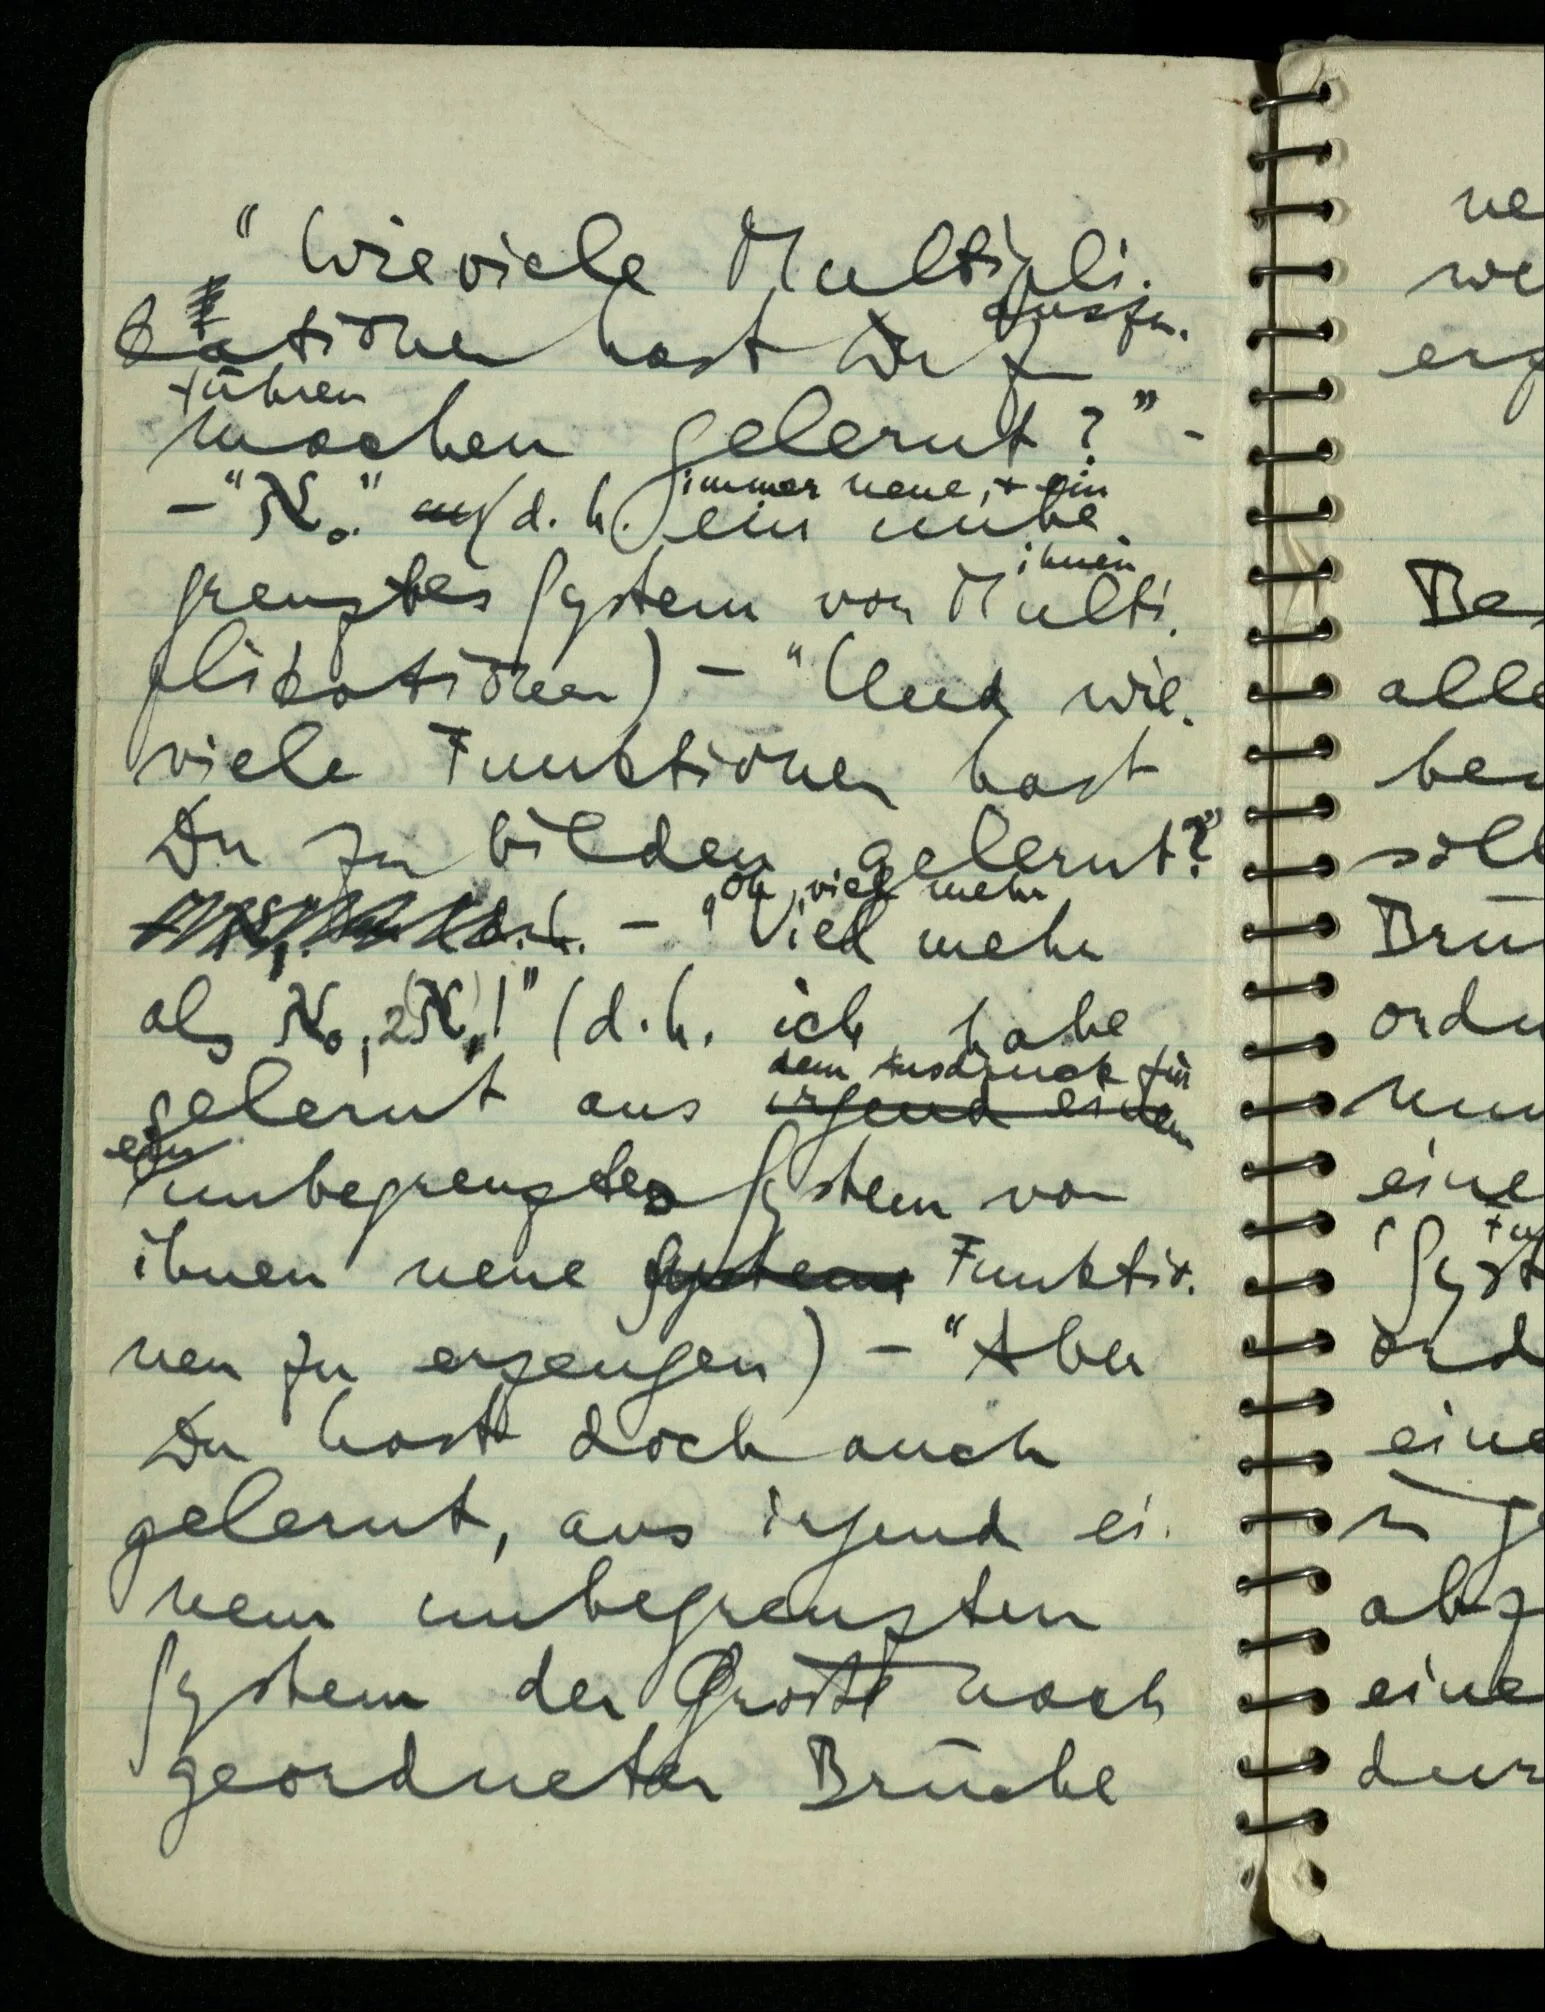 "Wieviele Multipli-
ausfu-
kationen hast Du z
führen
machen gelernt?" -
immer neue, + ein
- "ℵ₀" (d.h. ein unbe
ihnen
grenztes System von Multi-
plikationen) - "Und wie-
viele Funktionen hast
Du zu bilden gelernt?"
"Oh, viel mehr
d.h. - "Viel mehr
als ℵ₀, 2(ℵ₀)!" (d.h. ich habe
dem Ausdruck für
gelernt aus irgend einem
ein
unbegrenztes System von
ihnen neue Systeme Funktio-
nen zu erzeugen) - "Aber
Du hast doch auch
gelernt, aus irgend ei-
nem unbegrenzten
System der Größe nach
geordneter Brüche
ne
we
erg
Be
alle
ber
soll
Brü
ordn
nun
eine
Syst
ord
eine
zu ge
abz
eine
dur